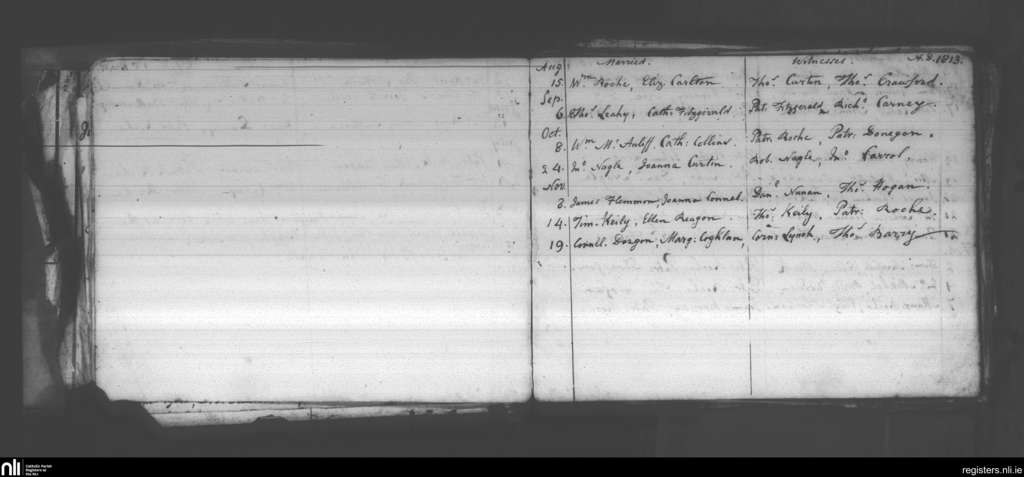 Married. Witnesses. A.D. 1813.
Aug
15. Wm Roche, Eliz Carlton Thos. Curtin, Thos. Crawford.
Sep.
6. Thos. Leahy, Cath: Fitzgerald Pat: Fitzgerald, Richd. Carney.
Oct.
8. Wm Mc Auliff, Cath: Collins. Patr: Roche, Patr: Donegan.
24. Jno. Nagle, Joanna Curtin Rob. Nagle, Jno. Carrol.
Nov
8. James Flemmon, Joanna Connel. Danl. Nunan, Thos. Hogan.
14. Tim. Keily, Ellen Reagon. Thos. Keily, Patr: Roche.
19. Cornel. Marg: Coghlan, Corns. Lynch, Thos. Barry
nli
Catholic Parish
Registers at
the NLI
registers.nli.ie